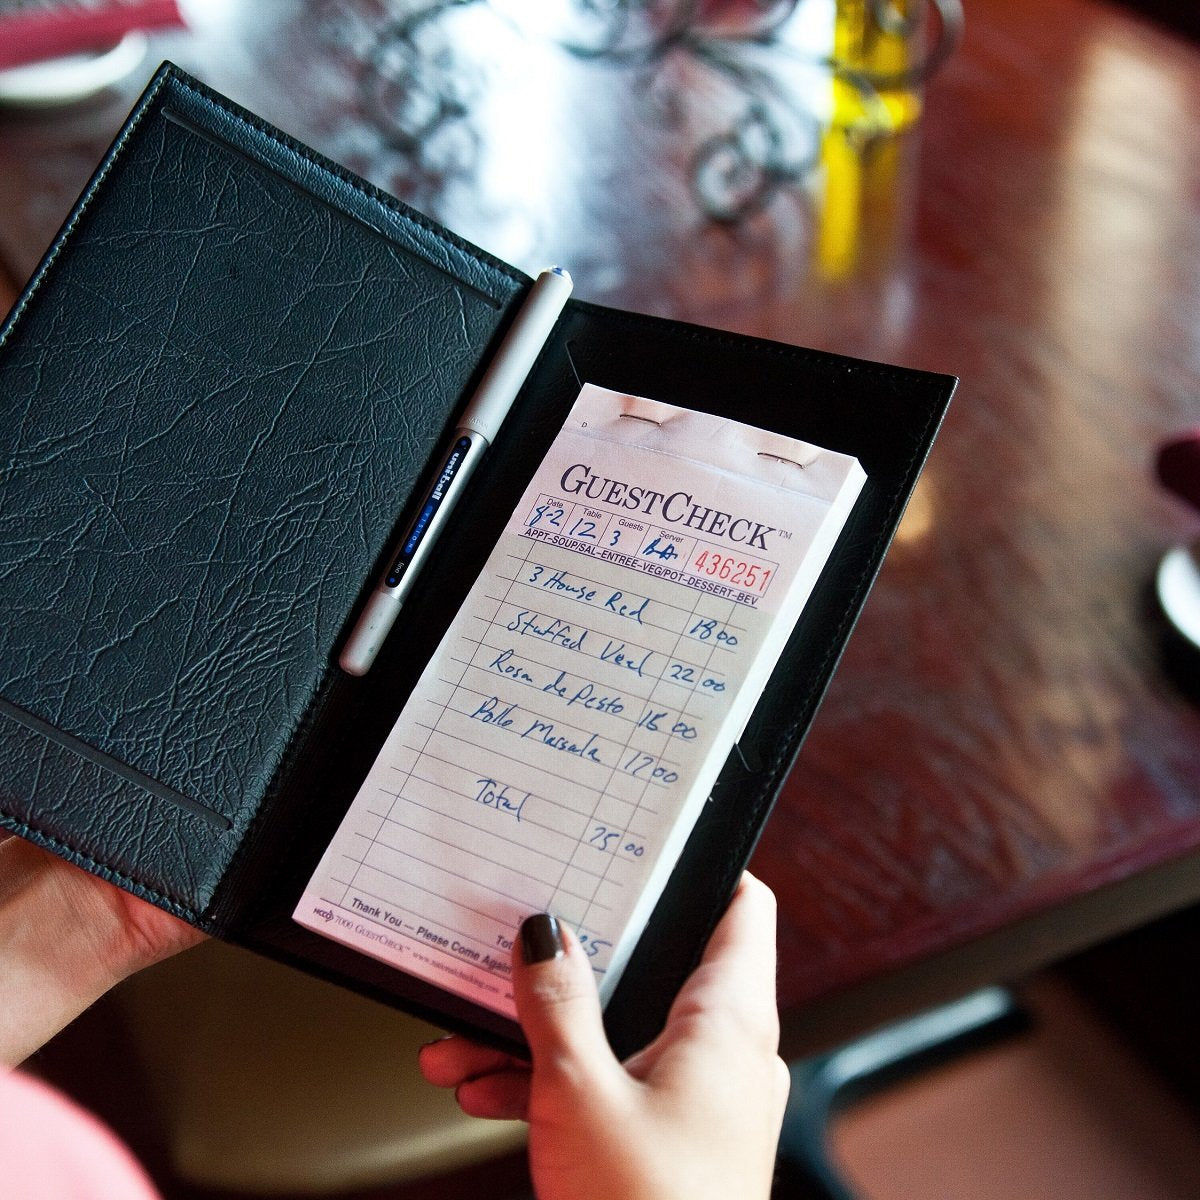 uniball
VISION
fine
D
GUESTCHECK™
Date Table Guests Server
8-2 12 3 436251
APPT-SOUP/SAL-ENTREE-VEG/POT-DESSERT-BEV
3 House Red 18 00
Stuffed Veal 22 00
Rosa de Pesto 18 00
Pollo Marsala 17 00
Total 75 00
Thank You — Please Come Again
7000 GUESTCHECK™